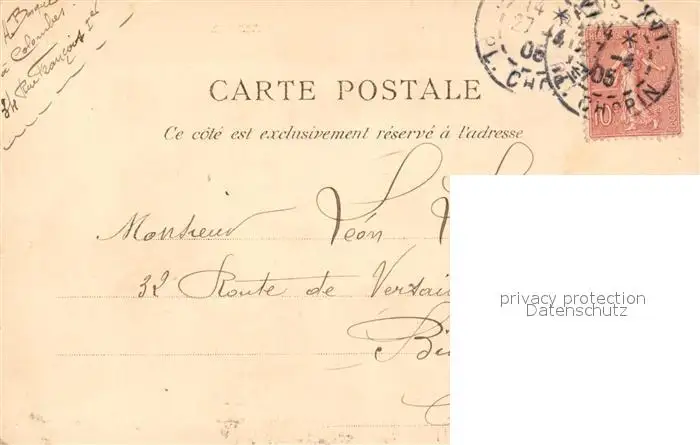 à Colombes
34 Rue François Ier
CARTE POSTALE
Ce côté est exclusivement réservé à l'adresse
Monsieur Léon
32 Route de Versai
privacy protection
Datenschutz